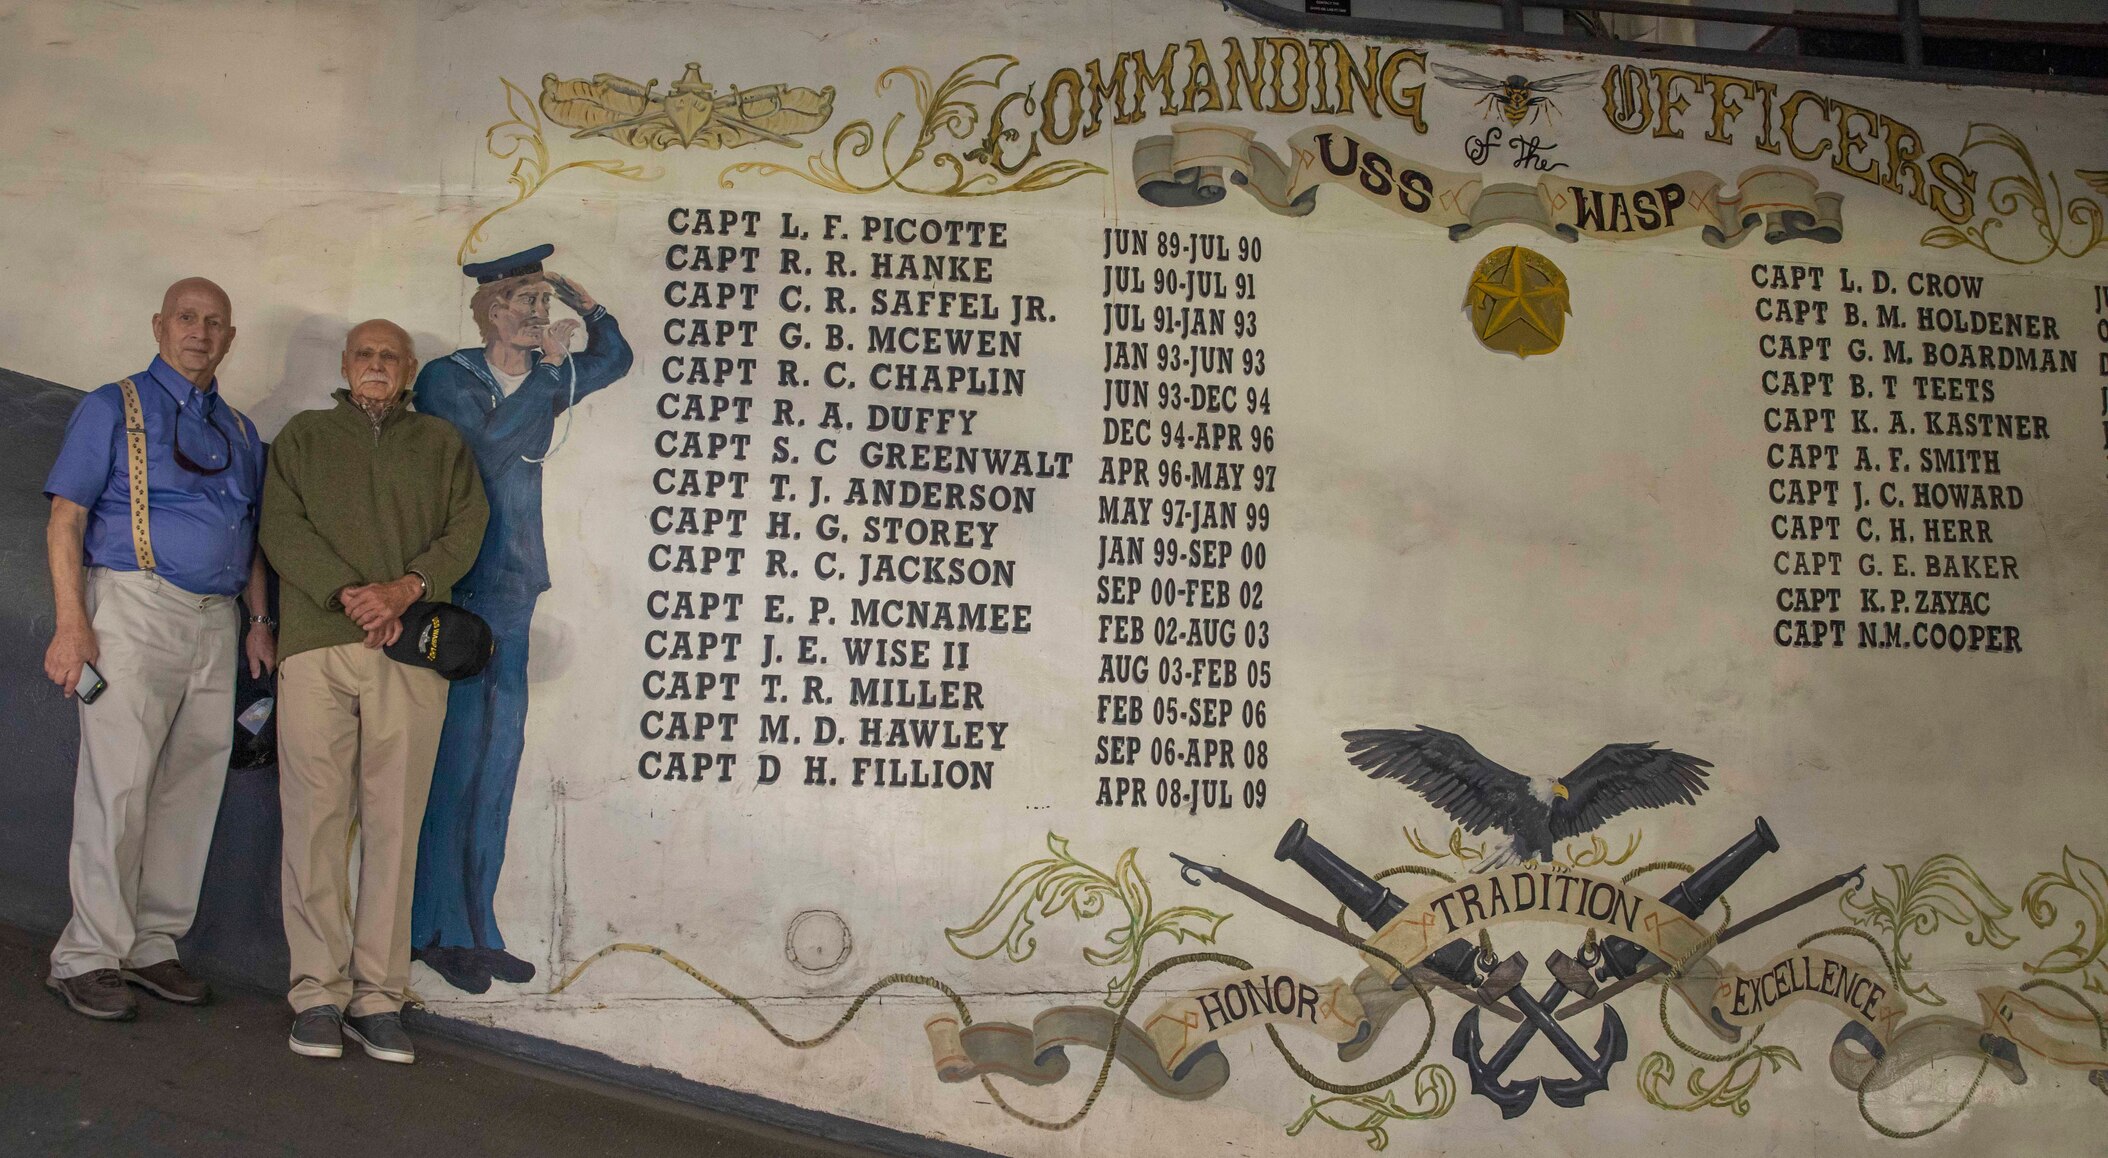 COMMANDING OFFICERS
of The
USS WASP
CAPT L. F. PICOTTE JUN 89-JUL 90
CAPT R. R. HANKE JUL 90-JUL 91
CAPT C. R. SAFFEL JR. JUL 91-JAN 93
CAPT G. B. MCEWEN JAN 93-JUN 93
CAPT R. C. CHAPLIN JUN 93-DEC 94
CAPT R. A. DUFFY DEC 94-APR 96
CAPT S. C GREENWALT APR 96-MAY 97
CAPT T. J. ANDERSON MAY 97-JAN 99
CAPT H. G. STOREY JAN 99-SEP 00
CAPT R. C. JACKSON SEP 00-FEB 02
CAPT E. P. MCNAMEE FEB 02-AUG 03
CAPT J. E. WISE II AUG 03-FEB 05
CAPT T. R. MILLER FEB 05-SEP 06
CAPT M. D. HAWLEY SEP 06-APR 08
CAPT D H. FILLION APR 08-JUL 09
CAPT L. D. CROW
CAPT B. M. HOLDENER
CAPT G. M. BOARDMAN
CAPT B. T TEETS
CAPT K. A. KASTNER
CAPT A. F. SMITH
CAPT J. C. HOWARD
CAPT C. H. HERR
CAPT G. E. BAKER
CAPT K. P. ZAYAC
CAPT N.M. COOPER
TRADITION
HONOR
EXCELLENCE